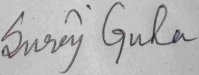 Suroj Guha